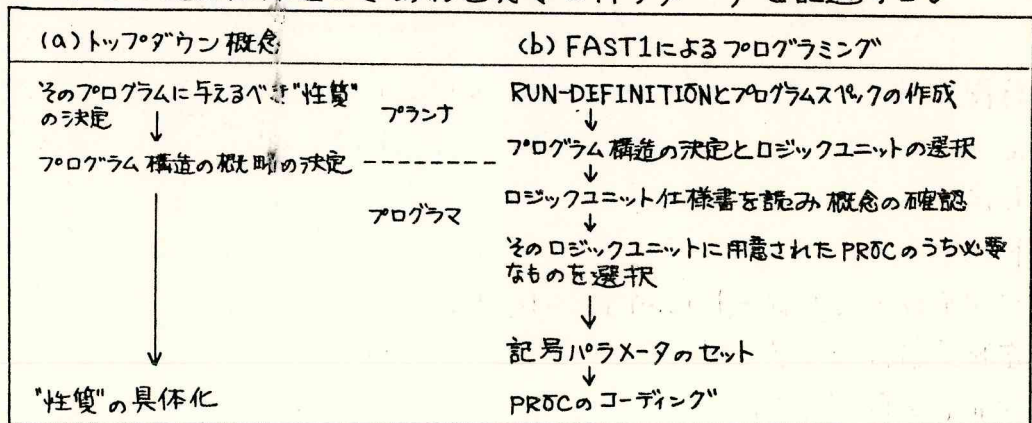 (a)トップダウン概念
(b) FAST1によるプログラミング
そのプログラムに与えるべき"性質"
の決定
↓
プログラム構造の概略の決定
↓
"性質"の具体化
プランナ
プログラマ
RUN-DEFINITIONとプログラムスペックの作成
↓
プログラム構造の決定とロジックユニットの選択
↓
ロジックユニット仕様書を読み概念の確認
↓
そのロジックユニットに用意されたPROCのうち必要
なものを選択
↓
記号パラメータのセット
↓
PROCのコーディング